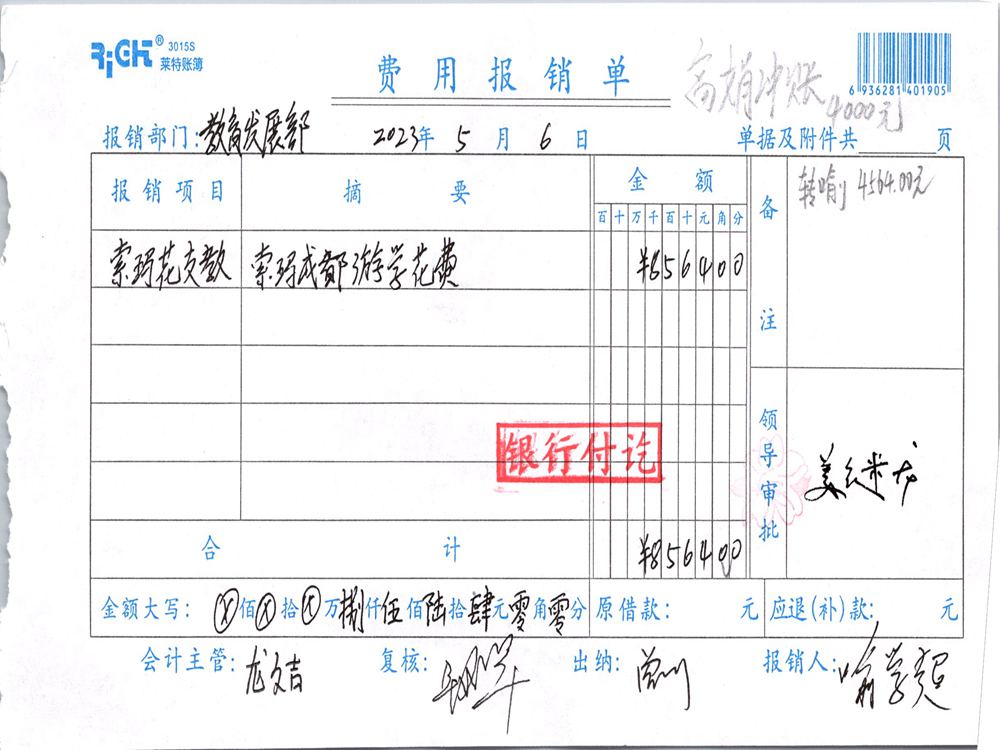 RiGHT® 3015S
莱特账簿
费用报销单
高娟冲账
4000元
6 936281 401905
报销部门:教育发展部 2023年 5 月 6 日 单据及附件共 页
报销项目 摘要 金额 备注
转喻 4564.00元
百十万千百十元角分
索玛花支教 索玛成都游学花费 ¥856400
银行付讫
领导审批
合计 ¥856400
金额大写: ⊗佰⊗拾⊗万捌仟伍佰陆拾肆元零角零分 原借款: 元 应退(补)款: 元
会计主管:龙文吉 复核: 出纳: 报销人:喻学超